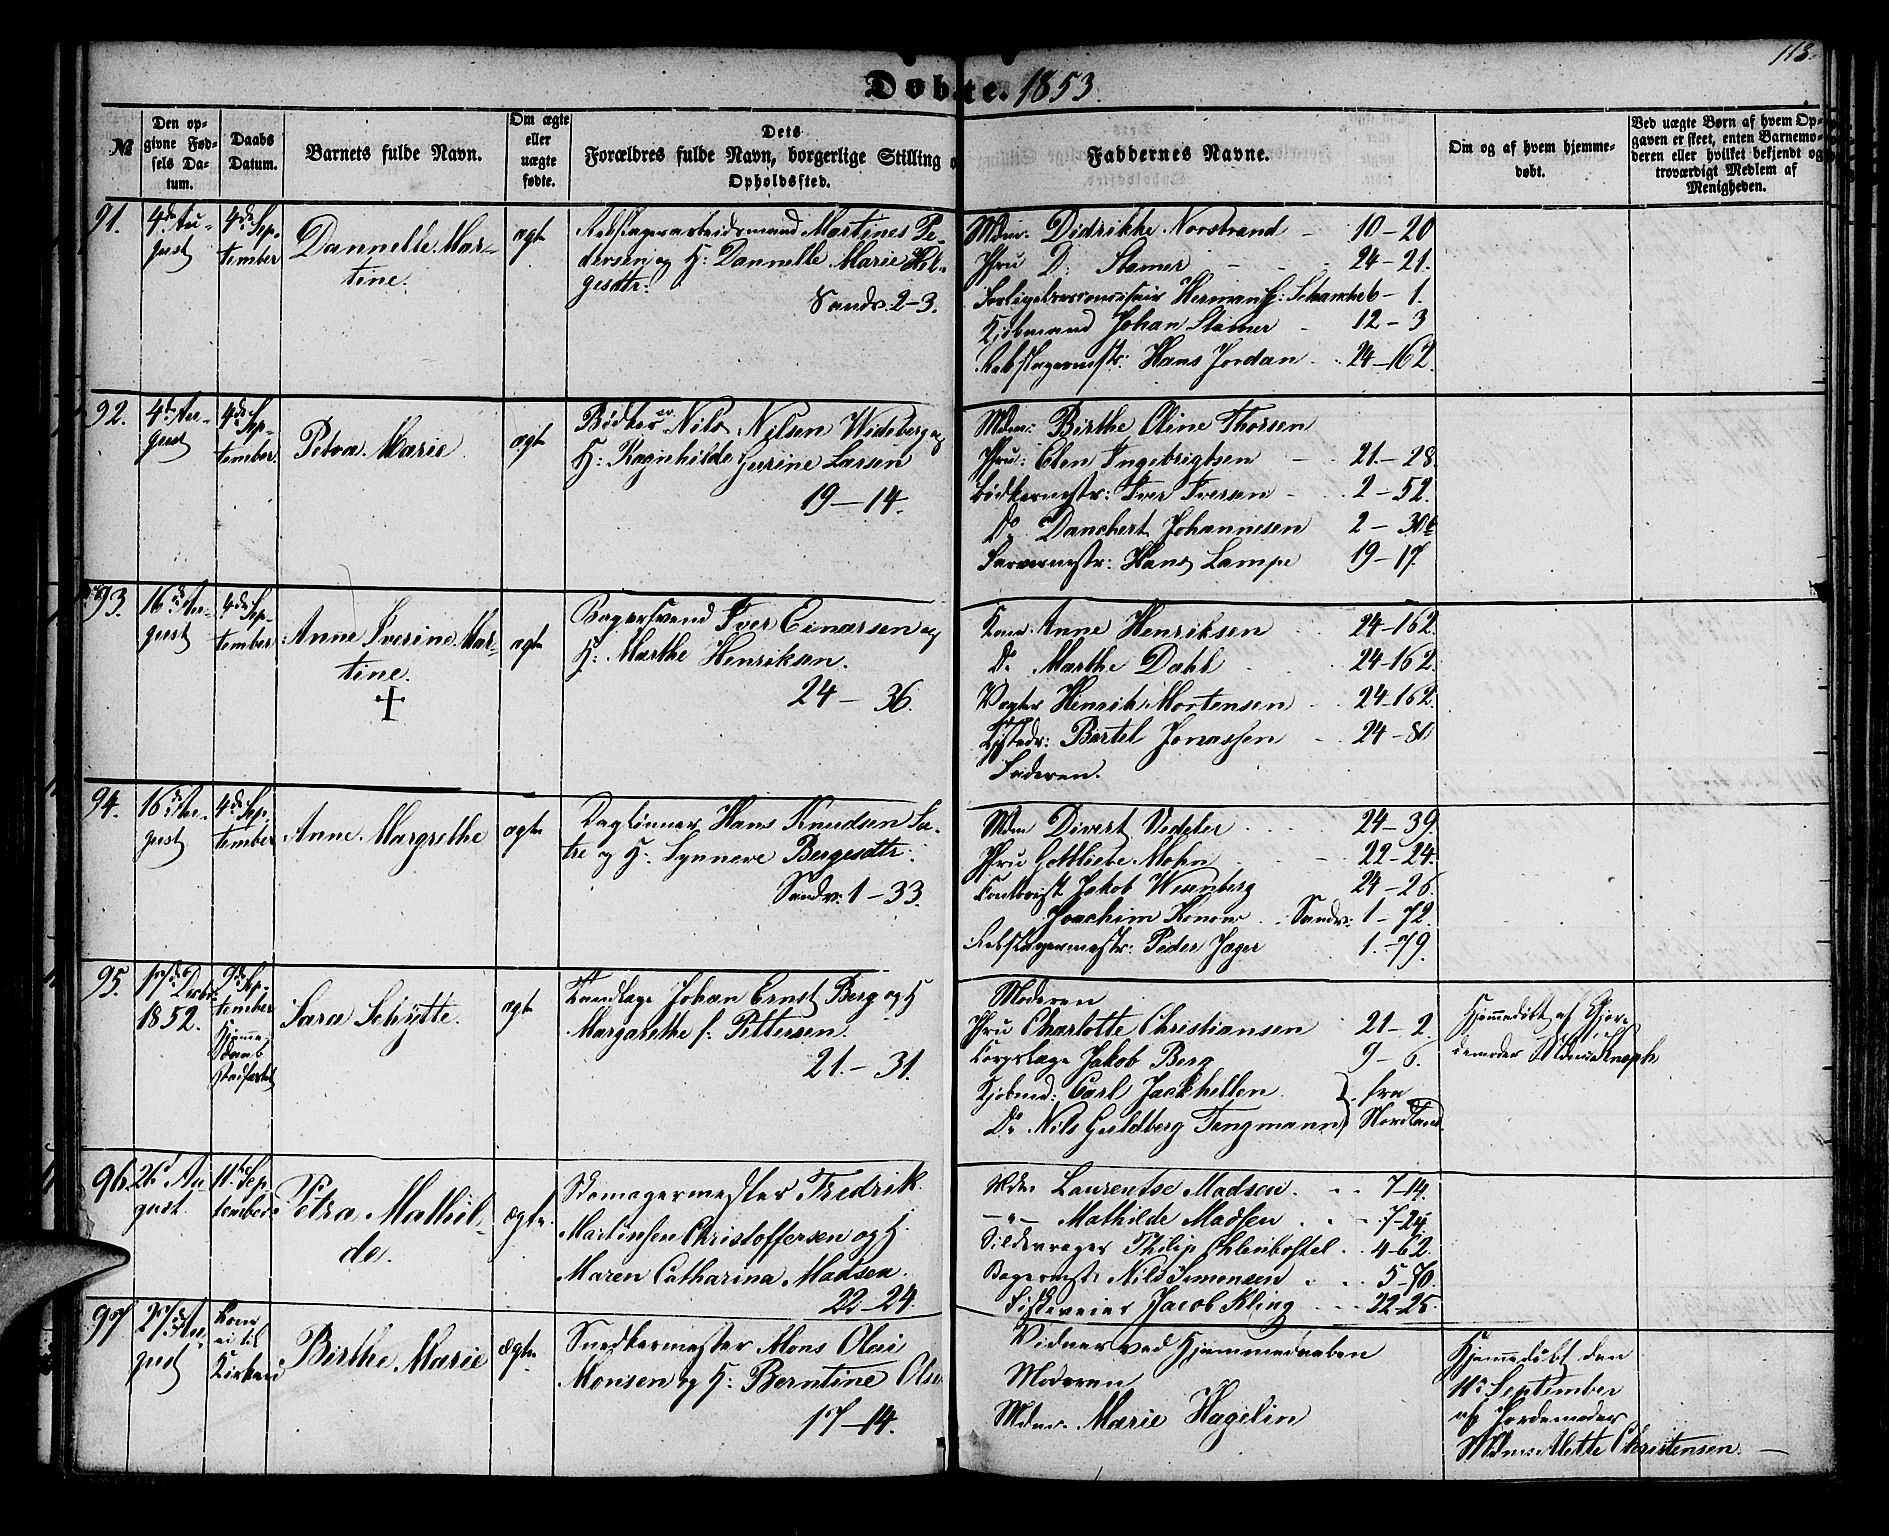 113.
Døbte. 1853.
№
Den opgivne Fødsels Datum.
Daabs Datum.
Barnets fulde Navn.
Om ægte eller uægte fødte.
Dets Forældres fulde Navn, borgerlige Stilling og Opholdssted.
Faddernes Navne.
Om og af hvem hjemmedøbt.
Ved uægte Børn af hvem Opgaven er skeet, enten Barnemoderen eller hvilket bekjendt og troværdigt Medlem af Menigheden.
91.
4de August
4de September
Dannelle Martine.
ægte
Rebslagerarbeidsmand Martines Pedersen og H: Dannelle Marie Helgesdtr:
Sandv. 2-3.
Mdm. Didrikke Norstrand - 10-20
Jfru D: Stamer - - 24-21.
Herman G: Schancke 6-1.
Kjøbmand Johan Stamer - 12-3
Rebslagermstr: Hans Jordan - 24-162.
92.
4de August
4de September.
Petra Marie
ægte
Bødkersv. Nils Nilsen Wideberg og
H: Ragnhilde Gurine Larsen
19-14.
Mdm: Birthe Oline Thorsen
Jfru: Elen Ingebrigtsen - 21-28.
Bødkermstr: Iver Iversen - 2-52.
Do Danchert Johannesen 2-30c
Farvermstr: Hans Lampe 19-17.
93.
16de August
4de September
Anne Iverine Martine.
+
ægte
Bagersvend Iver Einarsen og
H: Marthe Henriksen.
24-36.
Kone Anne Henriksen 24-162.
Do Marthe Dahl 24-162.
Vægter Henrik Mortensen 24-162.
Bertel Jonassen 24-80
Faderen.
94.
16de August
4de September
Anne Margrethe
ægte
Daglønner Hans Knudsen Satre og H: Synneve Bergesdtr:
Sandv: 1-33.
Mdm Divert Vedeler 24-39.
Jfru Gottliebe Mohn 22-24.
Contorist Jakob Wesenberg 24-26.
Joachim Konow Sandv: 1-72.
Rebslagermestr: Peder Jæger 1-79.
95.
17de Decbr: 1852.
9de September
Hjemmedaab stadfæstet
Sara Schytte.
ægte
Landlæge Johan Ernst Berg og H
Margarethe f. Pettersen.
21-31.
Moderen
Jfru Charlotte Christiansen 21-2
Corpslæge Jakob Berg 9-6.
Kjøbmd: Carl Jackhellen
Do Nils Guldberg Tengmann } fra Nordland.
Hjemmedøbt af Gjordemoder Oldine Kneph
96.
26de August.
11te September
Petra Mathilde.
ægte.
Skomagermester Fredrik
Martinsen Christoffersen og H
Maren Catharina Madsen.
22-24.
Mdm Laurentse Madsen. 7-14.
-"- Mathilde Madsen 7-24.
Sildevrager Philip Ohlenbostel 4-62.
Bagermst: Nils Simonsen 5-70.
Fiskeveier Jacob Kling 22-25.
97
27de August
Kom ei til Kirken
Birthe Marie
ægte
Snedkermester Mons Olai
Monsen og H: Berntine Olsen
17-14.
Vidner ved Hjemmedaaben
Moderen
Mdm. Marie Hagelin
Hjemmedøbt den
11te September
af Jordemoder
Mdm: Mette Christensen.